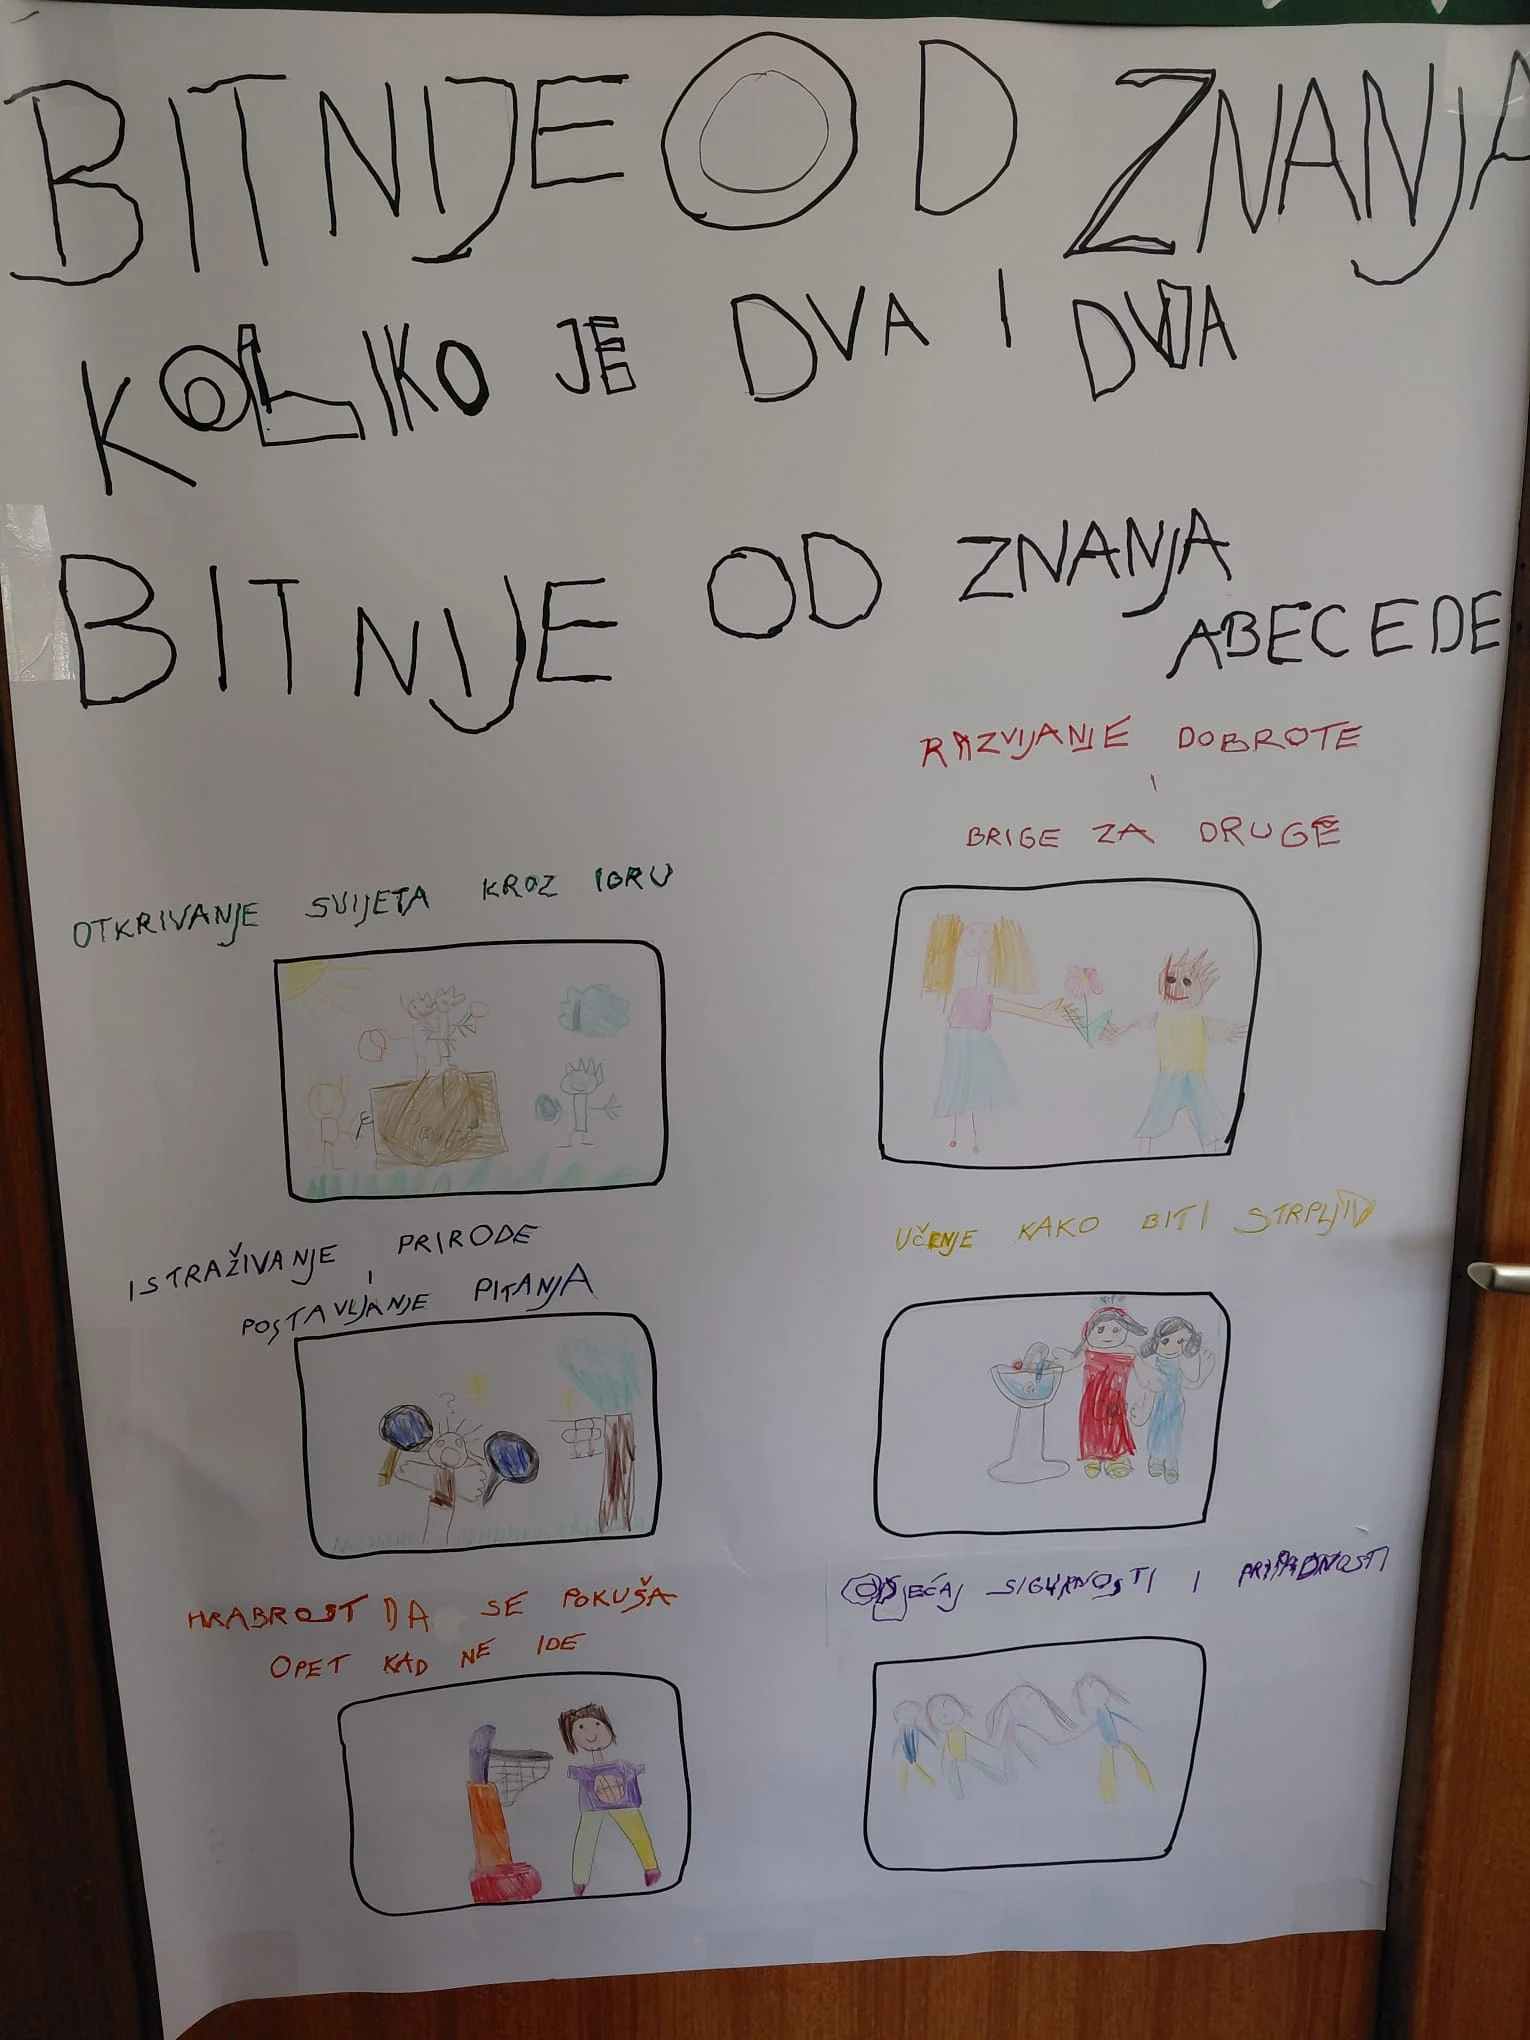 BITNIJE OD ZNANJA
KOLIKO JE DVA I DVA
BITNIJE OD ZNANJA
ABECEDE
RAZVIJANJE DOBROTE
I
BRIGE ZA DRUGE
OTKRIVANJE SVIJETA KROZ IGRU
ISTRAŽIVANJE PRIRODE
I
POSTAVLJANJE PITANJA
UČENJE KAKO BITI STRPLJIV
HRABROST DA SE POKUŠA
OPET KAD NE IDE
OSJEĆAJ SIGURNOSTI I PRIPADNOSTI